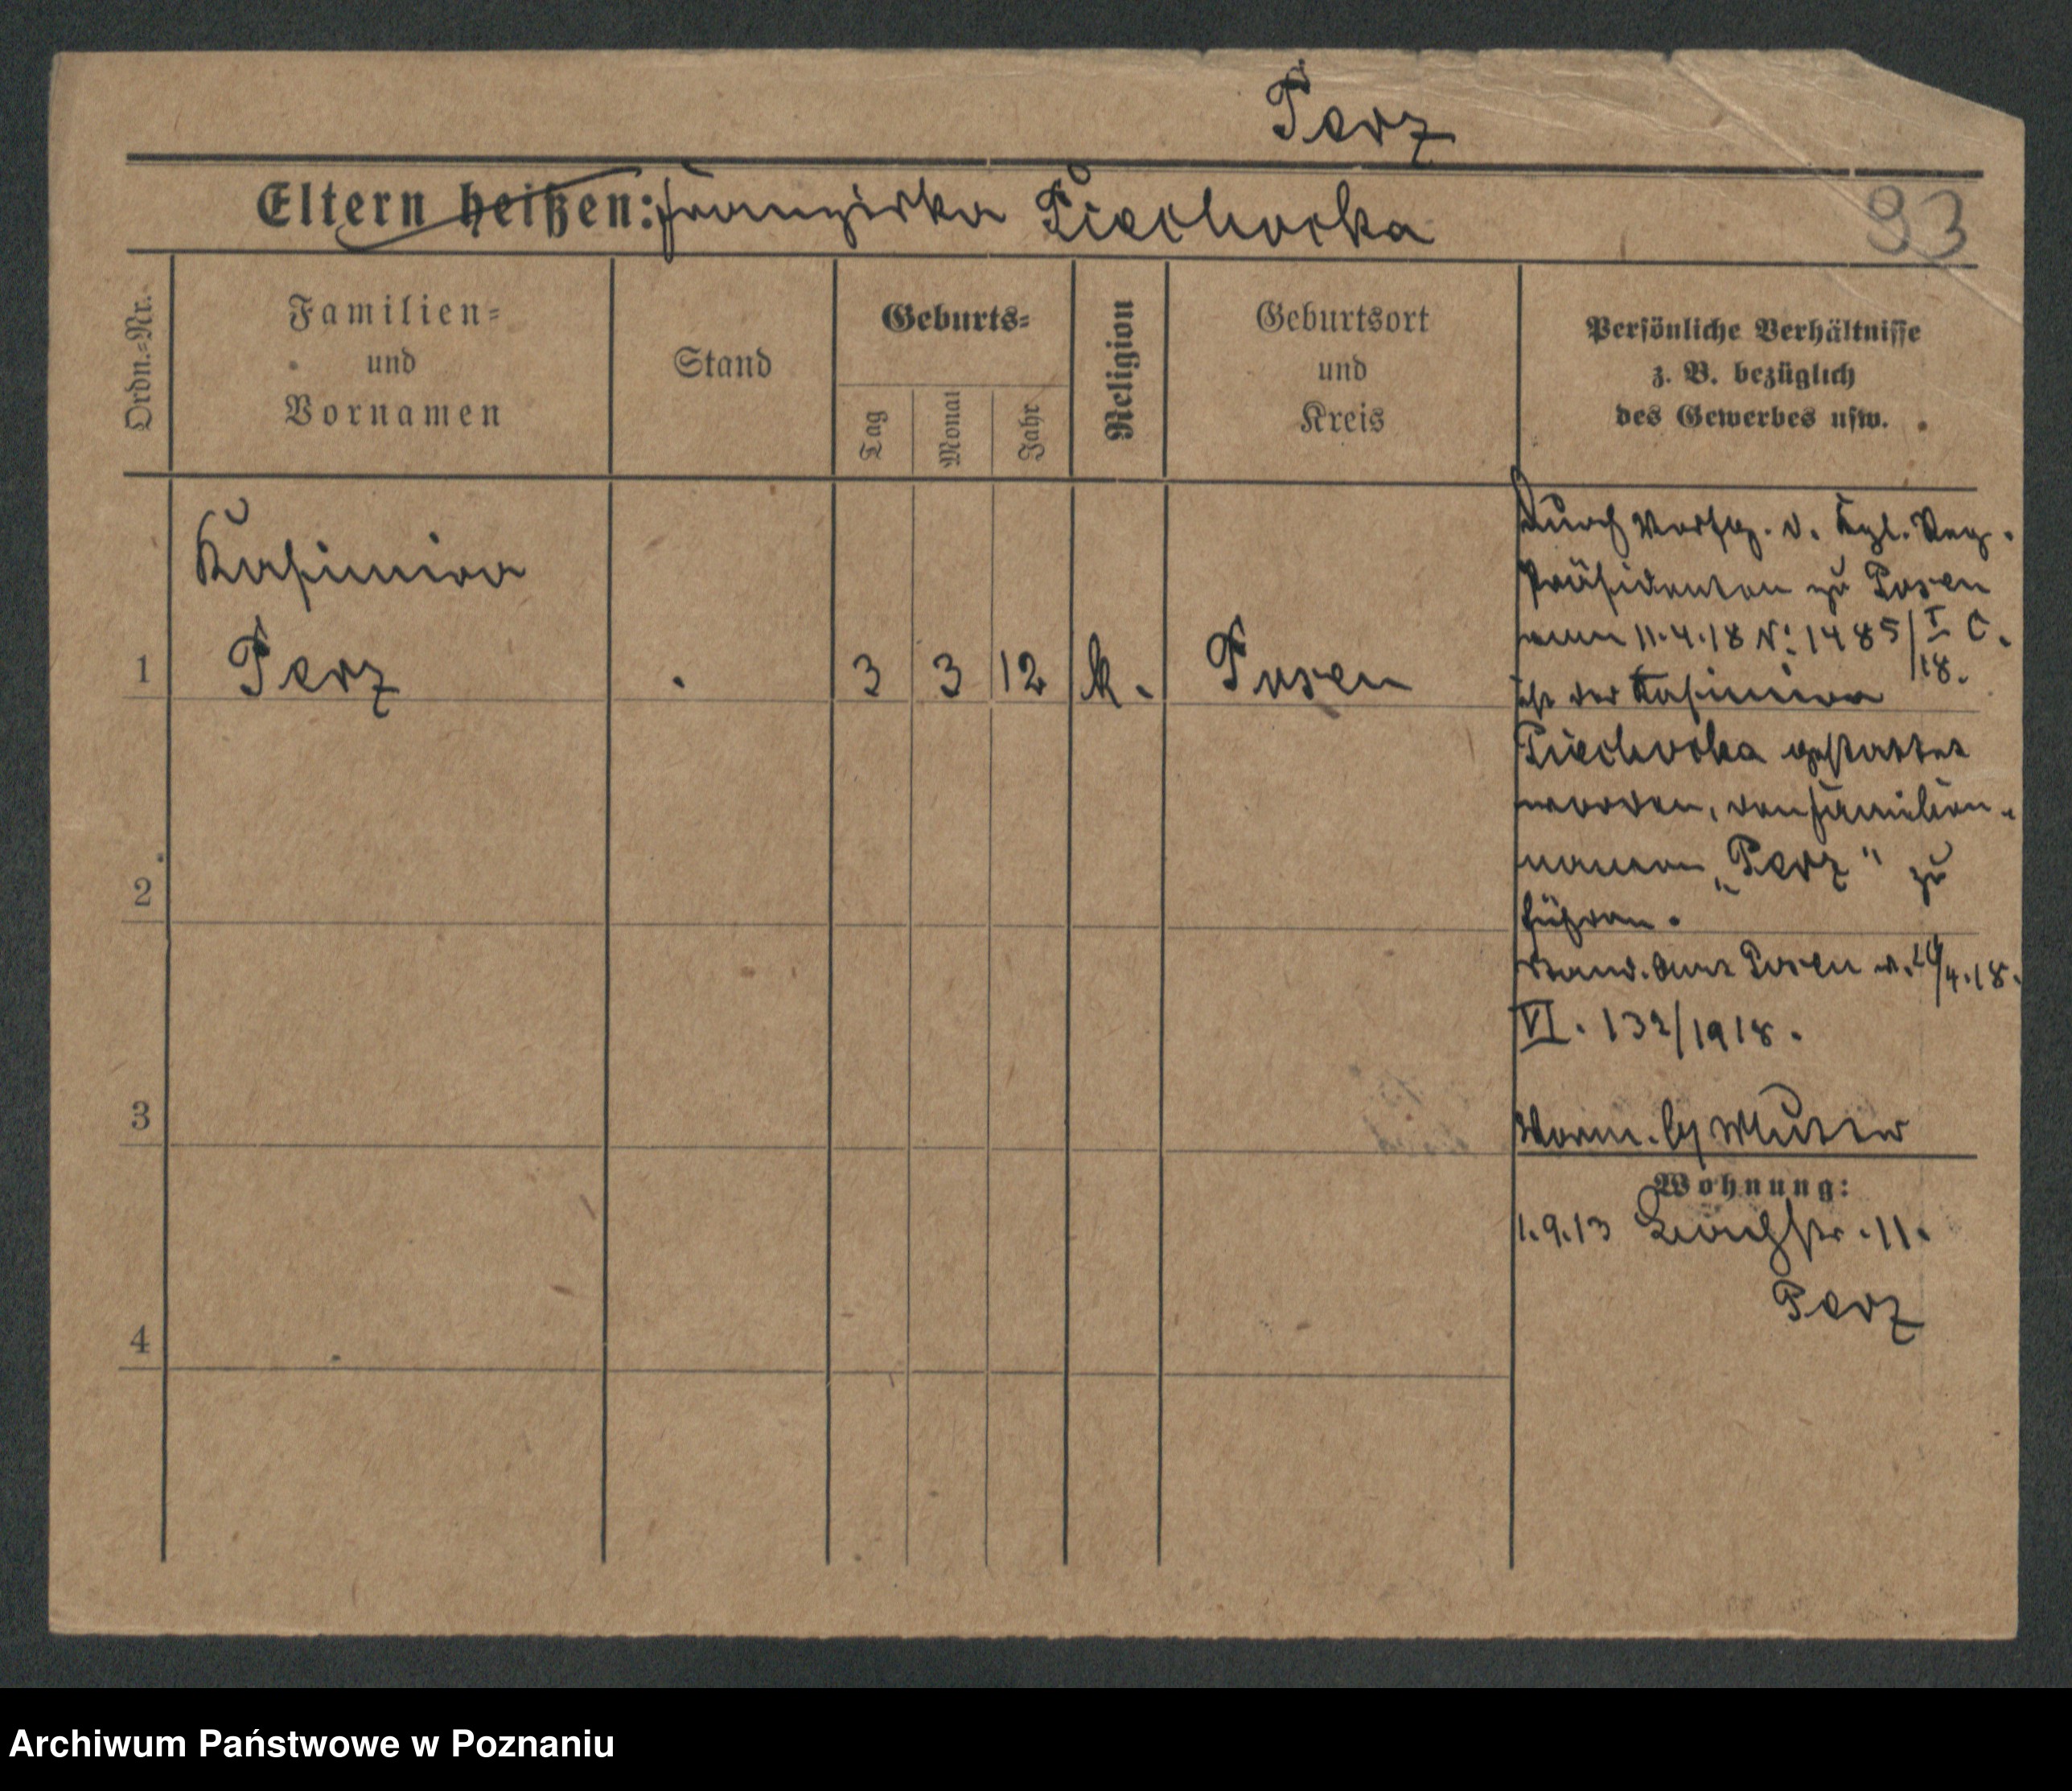 Perz
Eltern heißen: Franziska Piechocka
93
Ordn.-Nr.
Familien-
und
Vornamen
Stand
Geburts-
Tag
Monat
Jahr
Religion
Geburtsort
und
Kreis
Persönliche Verhältnisse
z. B. bezüglich
des Gewerbes usw.
Kasimira
1 Perz 3 3 12 k. Posen
2
3
4
Durch Verfg. d. Kgl. Reg.
Präsidenten zu Posen
vom 11.4.18 N: 1485/I C.
18.
ist der Kasimira
Piechocka gestattet
worden, den Familien-
namen „Perz“ zu
führen.
Stand. Amt Posen v. /4.18.
VI. 132/1918.
Vorm. by Mutter
Wohnung:
1.9.13 11.
Perz
Archiwum Państwowe w Poznaniu